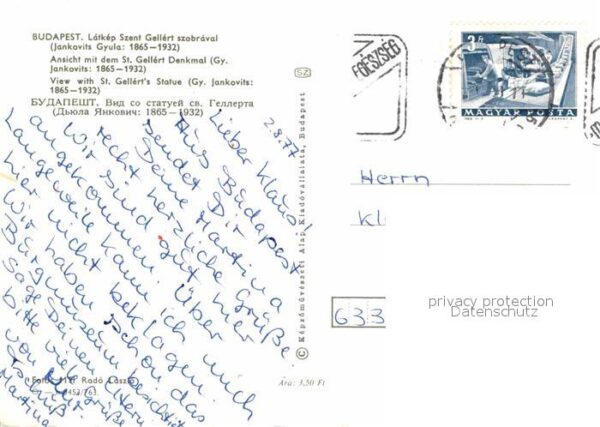 BUDAPEST. Látkép Szent Gellért szobrával
(Jankovits Gyula: 1865—1932)
Ansicht mit dem St. Gellért Denkmal (Gy.
Jankovits: 1865—1932)
View with St. Gellért's Statue (Gy. Jankovits:
1865—1932)
БУДАПЕШТ. Вид со статуей св. Геллерта
(Дьюла Янкович: 1865—1932)
2.8.77
Lieber Klaus!
Aus Budapest
sendet Dir
Deine Martina
recht herzliche Grüße.
Wir sind gut hier
angekommen. Über
Langeweile kann ich
hier nicht beklagen
Wir haben schon das
Burgmuseum besichtigt
Sage Deinen Eltern
bitte viele Grüße
von mir
Es grüßt
Martina
Foto: MTI Radó László
Ára: 3,50 Ft
© Képzőművészeti Alap Kiadóvállalata, Budapest
SZ
3 Ft
MAGYAR POSTA
EGÉSZSÉG
Herrn
Kl
633
privacy protection
Datenschutz